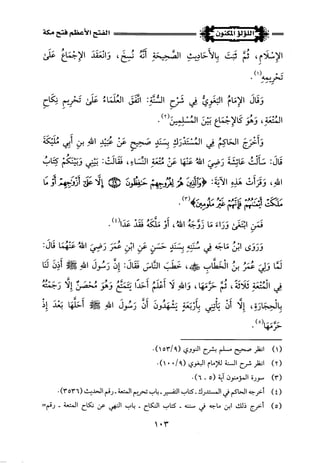 اللؤلؤ المكنون
الفتح الأعظم فتح مكة
الإِسْلَامِ، ثُمَّ ثَبَتَ بِالْأَحَادِيثِ الصَّحِيحَةِ أَنَّهُ نُسِخَ، وَانْعَقَدَ الْإِجْمَاعُ عَلَى
تَحْرِيمِهِ(١).
وَقَالَ الْإِمَامُ الْبَغَوِيُّ فِي شَرْحِ السُّنَّةِ: اتَّفَقَ الْعُلَمَاءُ عَلَى تَحْرِيمِ نِكَاحِ
الْمُتْعَةِ، وَهُوَ كَالْإِجْمَاعِ بَيْنَ الْمُسْلِمِينَ(٢).
وَأَخْرَجَ الْحَاكِمُ فِي الْمُسْتَدْرَكِ بِسَنَدٍ صَحِيحٍ عَنْ عُبَيْدِ اللهِ بنِ أَبِي مُلَيْكَةَ
قَالَ: سَأَلْتُ عَائِشَةَ رَضِيَ اللهُ عَنْهَا عَنْ مُتْعَةِ النِّسَاءِ، فَقَالَتْ: بَيْنِي وَبَيْنَكُمْ كِتَابُ
اللهِ، وَقَرَأَتْ هَذِهِ الْآيَةَ: ﴿وَالَّذِينَ هُمْ لِفُرُوجِهِمْ حَافِظُونَ ۝ إِلَّا عَلَى أَزْوَاجِهِمْ أَوْ مَا
مَلَكَتْ أَيْمَانُهُمْ فَإِنَّهُمْ غَيْرُ مَلُومِينَ﴾(٣).
فَمَنِ ابْتَغَى وَرَاءَ مَا زَوَّجَهُ اللهُ، أَوْ مَلَّكَهُ فَقَدْ عَدَا(٤).
وَرَوَى ابْنُ مَاجَه فِي سُنَنِهِ بِسَنَدٍ حَسَنٍ عَنِ ابْنِ عُمَرَ رَضِيَ اللهُ عَنْهُمَا قَالَ:
لَمَّا وَلِيَ عُمَرُ بنُ الْخَطَّابِ، خَطَبَ النَّاسَ فَقَالَ: إِنَّ رَسُولَ اللهِ ﷺ أَذِنَ لَنَا
فِي الْمُتْعَةِ ثَلَاثًا، ثُمَّ حَرَّمَهَا، وَاللهِ لَا أَعْلَمُ أَحَدًا يَتَمَتَّعُ وَهُوَ مُحْصَنٌ إِلَّا رَجَمْتُهُ
بِالْحِجَارَةِ، إِلَّا أَنْ يَأْتِيَ بِأَرْبَعَةٍ يَشْهَدُونَ أَنَّ رَسُولَ اللهِ ﷺ أَحَلَّهَا بَعْدَ إِذْ
حَرَّمَهَا(٥).
(١) انظر صحيح مسلم بشرح النووي (١٥٣/٩).
(٢) انظر شرح السنة للإمام البغوي (١٠٠/٩).
(٣) سورة المؤمنون آية (٥ - ٦).
(٤) أخرجه الحاكم في المستدرك - كتاب التفسير - باب تحريم المتعة - رقم الحديث (٣٥٣٦).
(٥) أخرج ذلك ابن ماجه في سننه - كتاب النكاح - باب النهي عن نكاح المتعة - رقم=
١٠٣